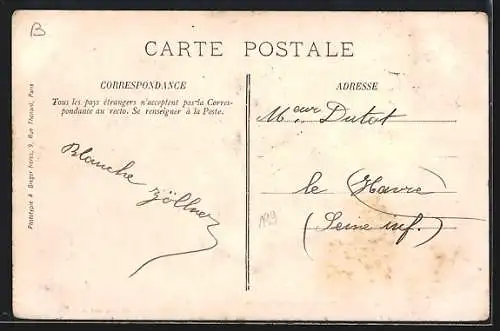 B
CARTE POSTALE
CORRESPONDANCE
Tous les pays étrangers n'acceptent pas la Corres-
pondance au recto. Se renseigner à la Poste.
Blanche Zöllner
ADRESSE
Meur Dutot
le Havre
(Seine inf.)
Phototypie A. Berger frères, 9, Rue Thénard, Paris